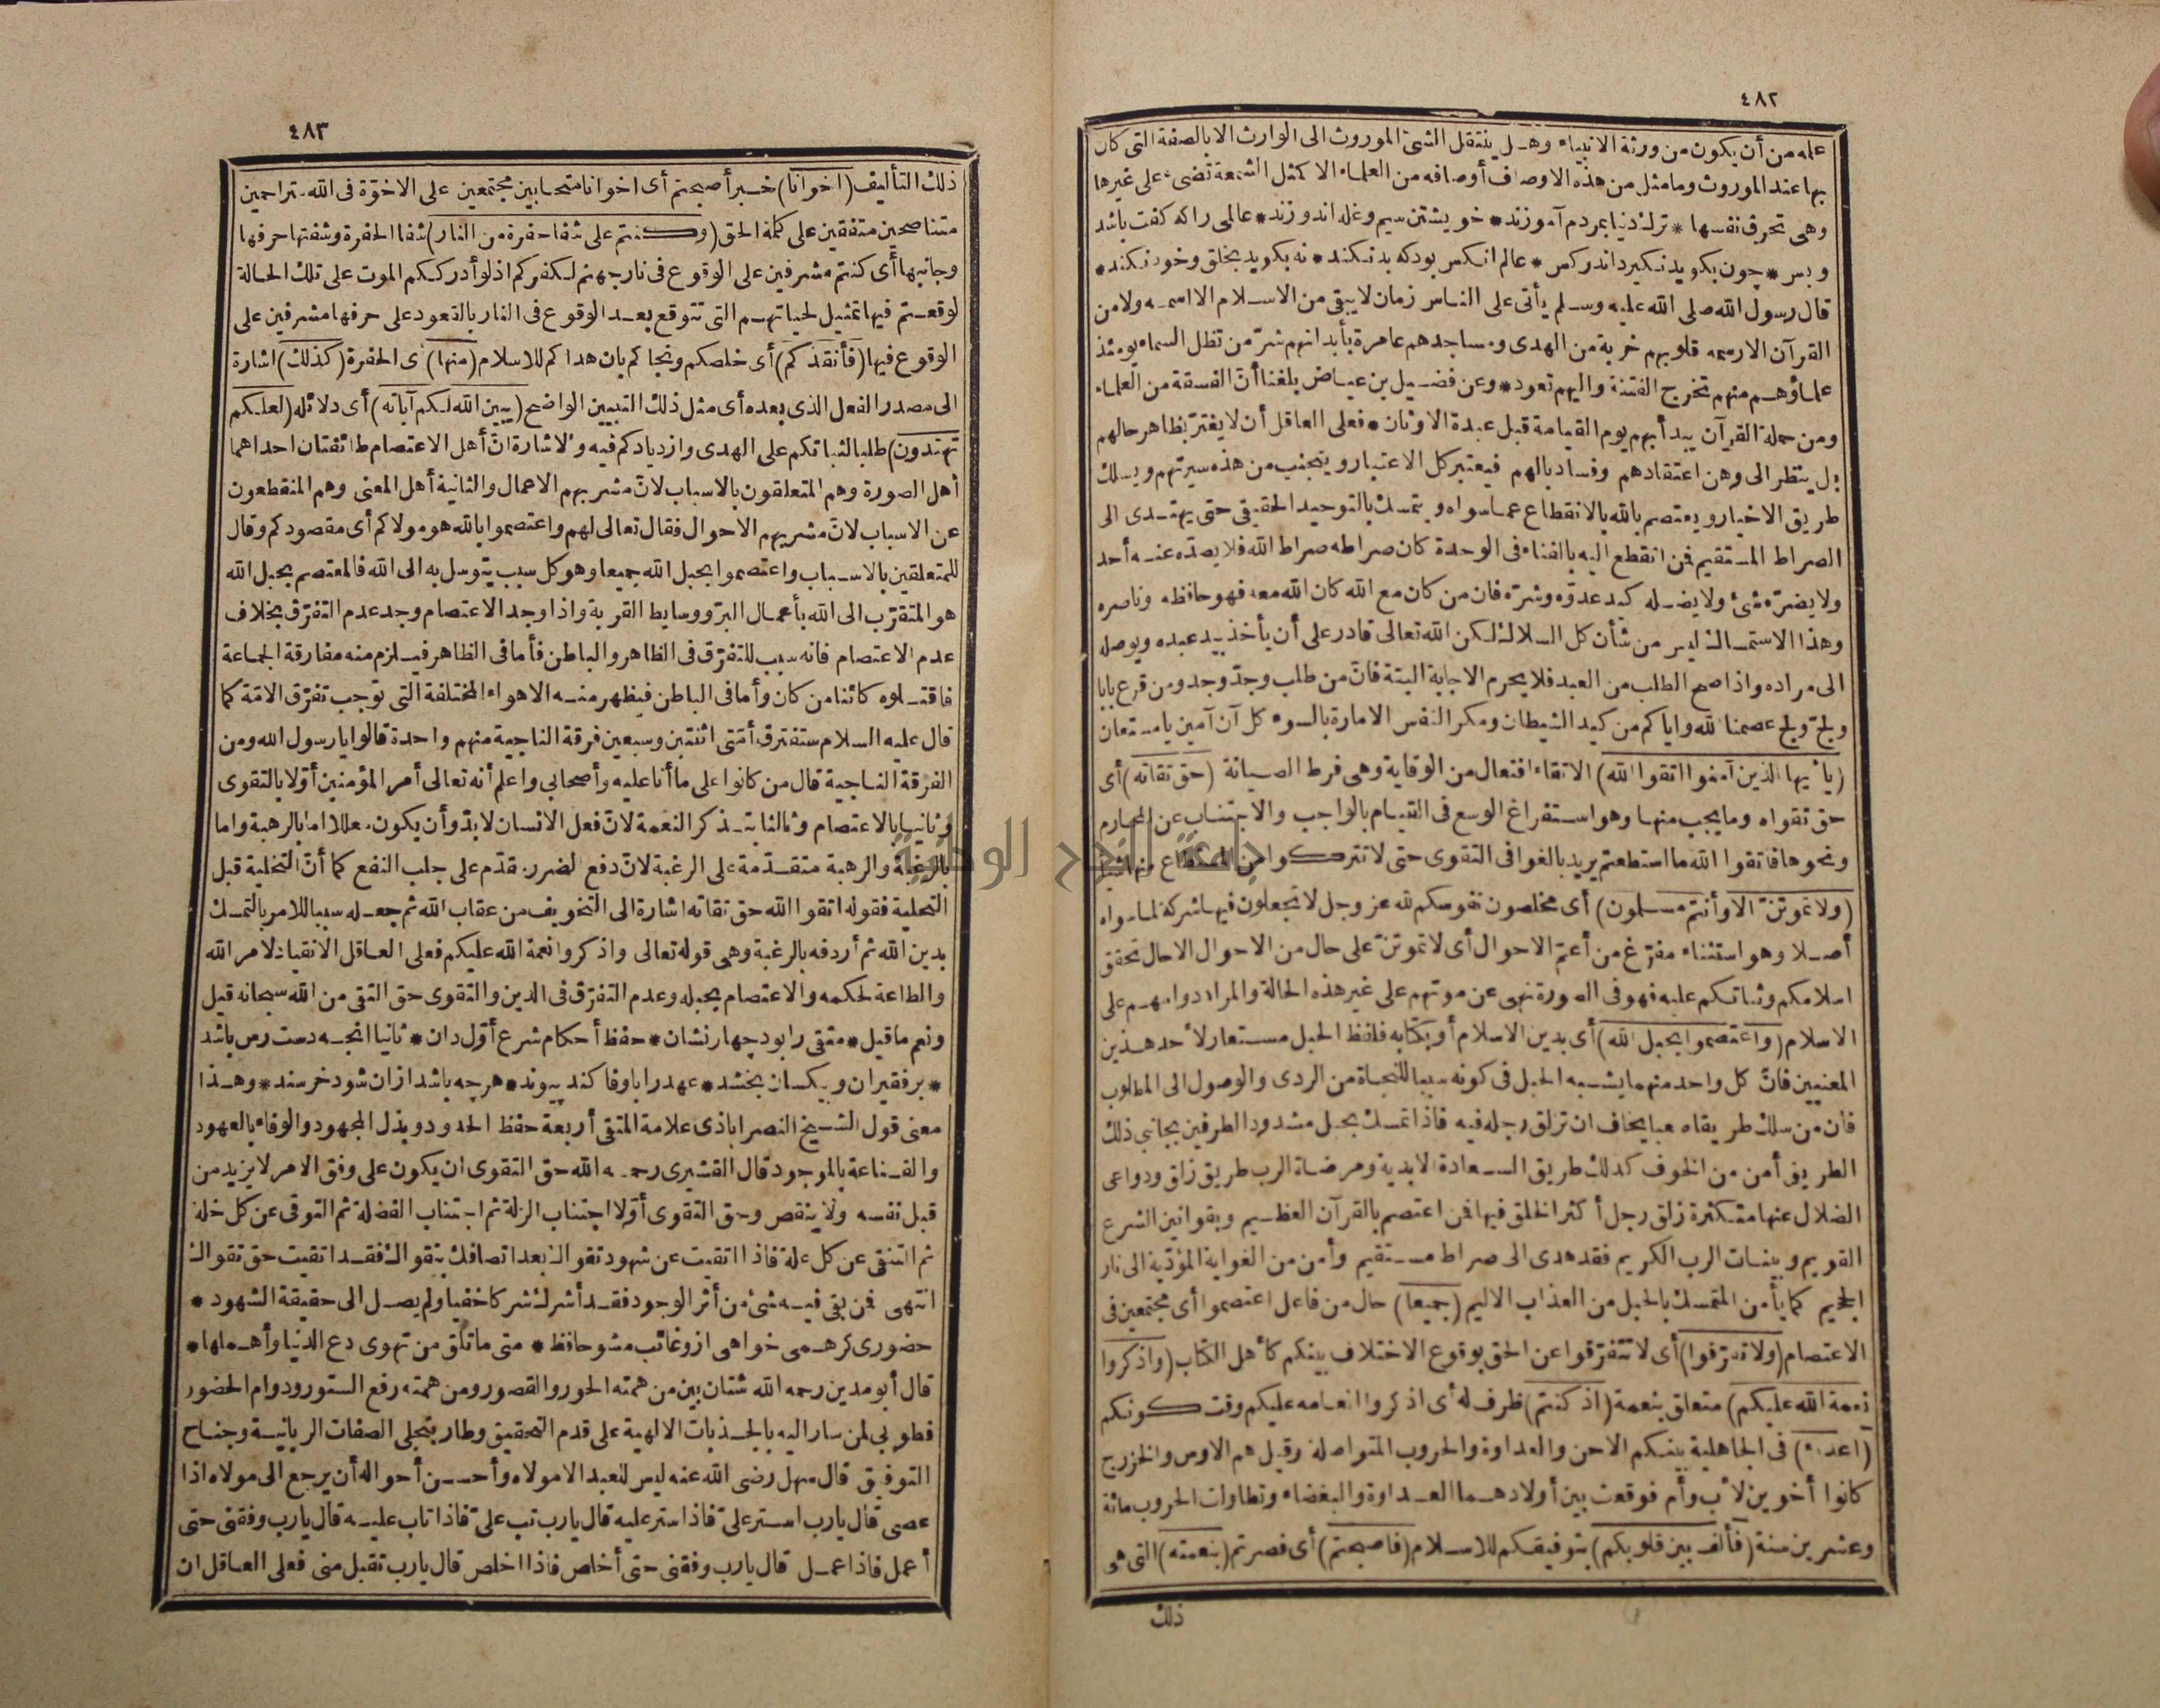 ٤٨٢
علمه من أن يكون من ورثة الانبياء وهل ينتقل الشئ الموروث الى الوارث الا بالصفة التى كان
بها عند الموروث وما مثل من هذه الاوصاف أوصافه من العلماء الا كمثل الشمعة تضىء على غيرها
وهى تحرق نفسها * ترك دنيا بمردم آموزند * خويشتن سيم وغله اندوزند * عالمى راكه كفت باشد
وبس * چون بكويد نكيرد اندركس * عالم انكس بود كه بد نكند * نه بكويد بخلق وخود نكند *
قال رسول الله صلى الله عليه وسلم يأتى على الناس زمان لا يبقى من الاسلام الا اسمه ولا من
القرآن الا رسمه قلوبهم خربة من الهدى ومساجدهم عامرة بأبدانهم شرّ من تظل السماء يومئذ
علماؤهم منهم تخرج الفتنة واليهم تعود * وعن فضيل بن عياض بلغنا أنّ الفسقة من العلماء
ومن حملة القرآن يبدأ بهم يوم القيامة قبل عبدة الاوثان * فعلى العاقل أن لا يغترّ بظاهر حالهم
بل ينظر الى وهن اعتقادهم وفساد بالهم فيعتبر كل الاعتبار ويجتنب من هذه سيرتهم ويسلك
طريق الاخيار ويعتصم بالله بالانقطاع عما سواه ويتمسك بالتوحيد الحقيقى حتى يهتدى الى
الصراط المستقيم فمن انقطع اليه بالفناء فى الوحدة كان صراطه صراط الله فلا يصدّه عنه أحد
ولا يضرّه شئ ولا يضله كيد عدوّه وشرّه فان من كان مع الله كان الله معه فهو حافظه وناصره
وهذا الاستمساك ليس من شأن كل السلاك لكن الله تعالى قادر على أن يأخذ بيد عبده ويوصله
الى مراده واذا صح الطلب من العبد فلا يحرم الاجابة البتة فانّ من طلب وجدّ وجد ومن قرع بابا
ولجّ ولج عصمنا الله واياكم من كيد الشيطان ومكر النفس الامارة بالسوء كل آن آمين يا مستعان
(يا أيها الذين آمنوا اتقوا الله) الاتقاء افتعال من الوقاية وهى فرط الصيانة (حق تقاته) أى
حق تقواه وما يجب منها وهو استفراغ الوسع فى القيام بالواجب والاجتناب عن المحارم
ونحوها فاتقوا الله ما استطعتم يريد بالغوا فى التقوى حتى لا تتركوا من المستطاع منها شيأ
(ولا تموتنّ الا وأنتم مسلمون) أى مخلصون نفوسكم لله عز وجل لا تجعلون فيها شركة لما سواه
أصلا وهو استثناء مفرّغ من أعمّ الاحوال أى لا تموتنّ على حال من الاحوال الا حال تحقق
اسلامكم وثباتكم عليه فهو فى الصورة نهى عن موتهم على غير هذه الحالة والمراد دوامهم على
الاسلام (واعتصموا بحبل الله) أى بدين الاسلام أو بكتابه فلفظ الحبل مستعار لأحد هذين
المعنيين فانّ كل واحد منهما يشبه الحبل فى كونه سببا للنجاة من الردى والوصول الى المطلوب
فان من سلك طريقا صعبا يخاف ان تزلق رجله فيه فاذا تمسك بحبل مشدود الطرفين بجانبى ذلك
الطريق أمن من الخوف كذلك طريق السعادة الابدية ومرضاة الرب طريق زلق ودواعى
الضلال عنها متكثرة زلق رجل أكثر الخلق فيها فمن اعتصم بالقرآن العظيم وبقوانين الشرع
القويم وبينات الرب الكريم فقد هدى الى صراط مستقيم وأمن من الغواية المؤدّية الى نار
الجحيم كما يأمن المتمسك بالحبل من العذاب الاليم (جميعا) حال من فاعل اعتصموا أى مجتمعين فى
الاعتصام (ولا تفرّقوا) أى لا تتفرّقوا عن الحق بوقوع الاختلاف بينكم كأهل الكتاب (واذكروا
نعمة الله عليكم) متعلق بنعمة (اذ كنتم) ظرف له أى اذكروا انعامه عليكم وقت كونكم
(أعداء) فى الجاهلية بينكم الاحن والعداوة والحروب المتواصلة وقيل هم الاوس والخزرج
كانوا أخوين لأب وأم فوقعت بين أولادهما العداوة والبغضاء وتطاولت الحروب مائة
وعشرين سنة (فألف بين قلوبكم) بتوفيقكم للاسلام (فاصبحتم) أى فصرتم (بنعمته) التى هى
ذلك
٤٨٣
ذلك التأليف (اخوانا) خبر أصبحتم أى اخوانا متحابين مجتمعين على الاخوّة فى الله متراحمين
متناصحين متفقين على كلمة الحق (وكنتم على شفا حفرة من النار) شفا الحفرة وشفتها حرفها
وجانبها أى كنتم مشرفين على الوقوع فى نار جهنم لكفركم اذ لو أدرككم الموت على تلك الحالة
لوقعتم فيها تمثيل لحياتهم التى تتوقع بعد الوقوع فى النار بالقعود على حرفها مشرفين على
الوقوع فيها (فأنقذكم) أى خلصكم ونجاكم بان هداكم للاسلام (منها) أى الحفرة (كذلك) اشارة
الى مصدر الفعل الذى بعده أى مثل ذلك التبيين الواضح (يبين الله لكم آياته) أى دلائله (لعلكم
تهتدون) طلبا لثباتكم على الهدى وازديادكم فيه والاشارة انّ أهل الاعتصام طائفتان احداهما
أهل الصورة وهم المتعلقون بالاسباب لانّ مشربهم الاعمال والثانية أهل المعنى وهم المنقطعون
عن الاسباب لانّ مشربهم الاحوال فقال تعالى لهم واعتصموا بالله هو مولاكم أى مقصودكم وقال
للمتعلقين بالاسباب واعتصموا بحبل الله جميعا وهو كل سبب يتوسل به الى الله فالمعتصم بحبل الله
هو المتقرّب الى الله بأعمال البرّ ووسايط القربة واذا وجد الاعتصام وجد عدم التفرّق بخلاف
عدم الاعتصام فانه سبب للتفرّق فى الظاهر والباطن فأما فى الظاهر فيلزم منه مفارقة الجماعة
فاقتلوه كائنا من كان وأما فى الباطن فيظهر منه الاهواء المختلفة التى توجب تفرّق الامّة كما
قال عليه السلام ستفترق أمّتى اثنتين وسبعين فرقة الناجية منهم واحدة قالوا يا رسول الله ومن
الفرقة الناجية قال من كانوا على ما أنا عليه وأصحابى واعلم أنه تعالى أمر المؤمنين أوّلا بالتقوى
وثانيا بالاعتصام وثالثا بتذكر النعمة لانّ فعل الانسان لابدّ وأن يكون معللا اما بالرهبة واما
بالرغبة والرهبة متقدّمة على الرغبة لانّ دفع الضرر مقدّم على جلب النفع كما أنّ التخلية قبل
التحلية فقوله اتقوا الله حق تقاته اشارة الى التخويف من عقاب الله ثم جعله سببا للامر بالتمسك
بدين الله ثم أردفه بالرغبة وهى قوله تعالى واذكروا نعمة الله عليكم فعلى العاقل الانقياد لامر الله
والطاعة لحكمه والاعتصام بحبله وعدم التفرّق فى الدين والتقوى حق التقى من الله سبحانه قيل
ونعم ما قيل * متقى را بود چهار نشان * حفظ أحكام شرع أوّل دان * ثانيا انچه دست رس باشد
* بر فقيران وبيكسان بخشد * عهد را با وفا كند پيوند * هرچه باشد ازان شود خرسند * وهذا
معنى قول الشيخ النصراباذى علامة المتقى أربعة حفظ الحدود وبذل المجهود والوفاء بالعهود
والقناعة بالموجود قال القشيرى رحمه الله حق التقوى ان يكون على وفق الامر لا يزيد من
قبل نفسه ولا ينقص وحق التقوى أوّلا اجتناب الزلة ثم اجتناب الفضلة ثم التوقى عن كل خلة
ثم التنقى عن كل علة فاذا اتقيت عن شهود تقواك بعد اتصافك بتقواك فقد اتقيت حق تقواك
انتهى فمن بقى فيه شئ من أثر الوجود فقد أشرك شركا خفيا ولم يصل الى حقيقة الشهود *
حضورى كر همى خواهى ازو غائب مشو حافظ * متى ما تلق من تهوى دع الدنيا وأهملها *
قال أبو مدين رحمه الله شتان بين من همته الحور والقصور ومن همته رفع الستور ودوام الحضور
فطوبى لمن سار اليه بالجذبات الالهية على قدم التحقيق وطار بتجلى الصفات الربانية وجناح
التوفيق قال سهل رضى الله عنه ليس للعبد الا مولاه وأحسن أحواله أن يرجع الى مولاه اذا
عصى قال يارب استر علىّ فاذا ستر عليه قال يارب تب علىّ فاذا تاب عليه قال يارب وفقنى حتى
أعمل فاذا عمل قال يارب وفقنى حتى أخلص فاذا اخلص قال يارب تقبل منى فعلى العاقل ان
جامعة النجاح الوطنية